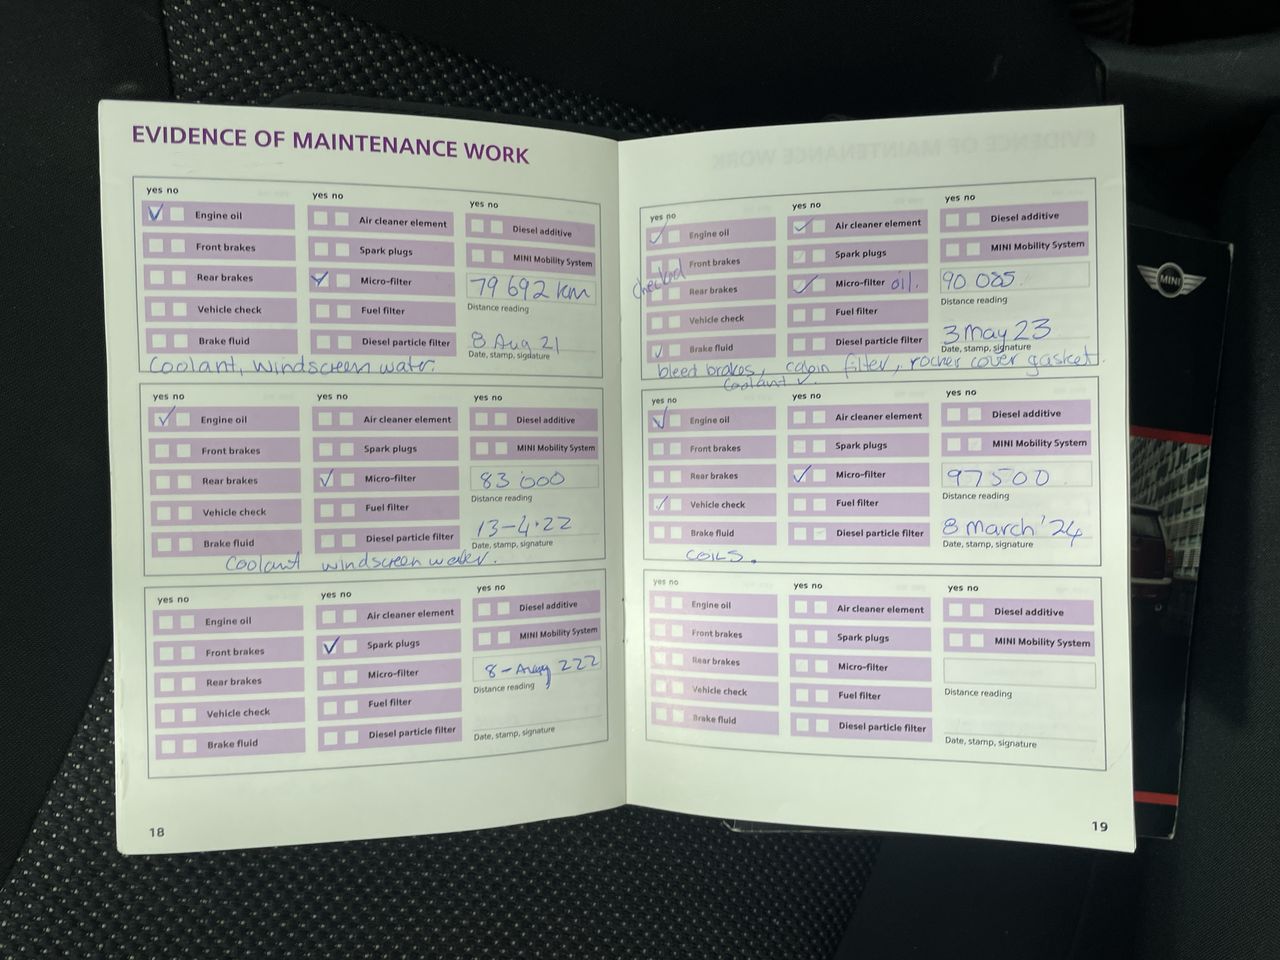 EVIDENCE OF MAINTENANCE WORK
yes no
Engine oil
Front brakes
Rear brakes
Vehicle check
Brake fluid
yes no
Air cleaner element
Spark plugs
Micro-filter
Fuel filter
Diesel particle filter
Diesel additive
MINI Mobility System
79 692 km
Distance reading
8 Aug 21
Date, stamp, signature
Coolant, windscreen water.
yes no
Engine oil
Front brakes
Rear brakes
Vehicle check
Brake fluid
yes no
Air cleaner element
Spark plugs
Micro-filter
Fuel filter
Diesel particle filter
Diesel additive
MINI Mobility System
83 000
Distance reading
13-4-22
Date, stamp, signature
Coolant windscreen water.
yes no
Engine oil
Front brakes
Rear brakes
Vehicle check
Brake fluid
yes no
Air cleaner element
Spark plugs
Micro-filter
Fuel filter
Diesel particle filter
Diesel additive
MINI Mobility System
Distance reading
Date, stamp, signature
18
yes no
Engine oil
Front brakes
checked
Rear brakes
Vehicle check
Brake fluid
yes no
Air cleaner element
Spark plugs
Micro-filter oil.
Fuel filter
Diesel particle filter
Diesel additive
MINI Mobility System
90 085
Distance reading
3 May 23
Date, stamp, signature
bleed brakes, cabin filter, rocker cover gasket.
Coolant
yes no
Engine oil
Front brakes
Rear brakes
Vehicle check
Brake fluid
yes no
Air cleaner element
Spark plugs
Micro-filter
Fuel filter
Diesel particle filter
yes no
Diesel additive
MINI Mobility System
97500
Distance reading
8 March '24
Date, stamp, signature
COILS.
yes no
Engine oil
Front brakes
Rear brakes
Vehicle check
Brake fluid
yes no
Air cleaner element
Spark plugs
Micro-filter
Fuel filter
Diesel particle filter
yes no
Diesel additive
MINI Mobility System
Distance reading
Date, stamp, signature
19
MINI